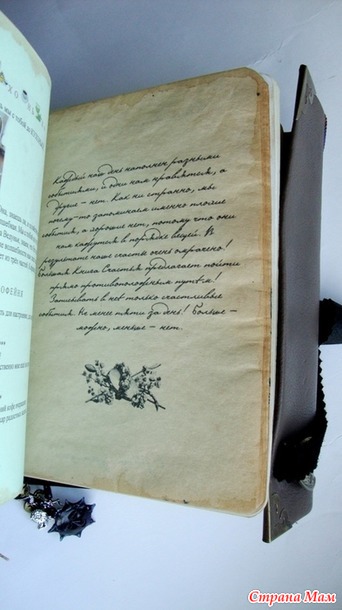 Каждый наш день наполнен разными
событиями, и одни нам нравятся, а
другие - нет. Как ни странно, мы
почему-то запоминаем именно плохие
события, а хорошие нет, потому что они
нам кажутся в порядке вещей. В
результате наше счастье очень омрачено!
Большая Книга Счастья предлагает пойти
прямо противоположным путём!
Записывать в неё только счастливые
события. Не менее пяти за день! Больше -
можно, меньше - нет.
Страна Мам